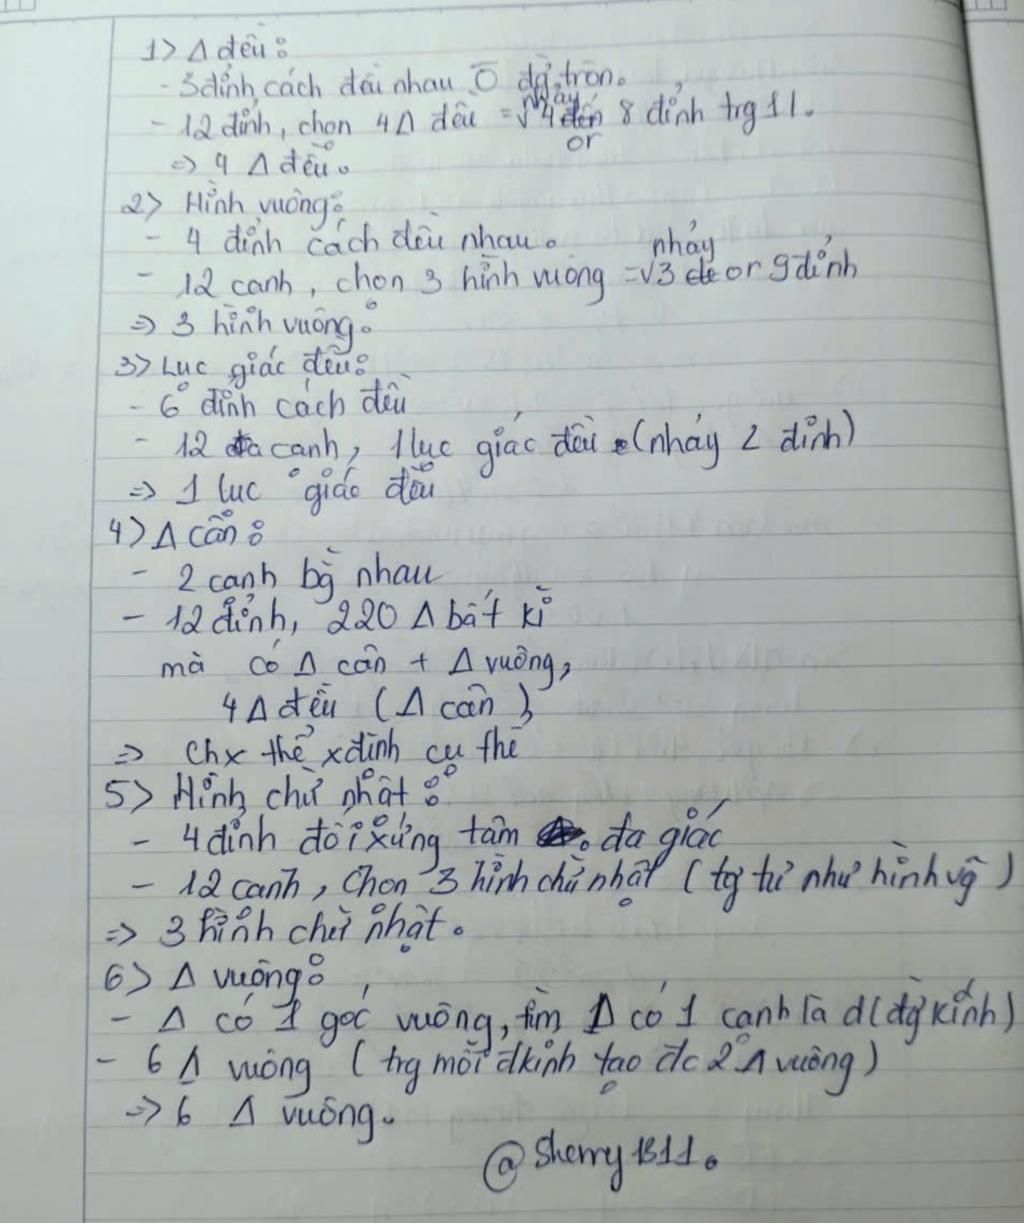 1> Δ đều:
- 3 đỉnh cách đều nhau ō đg tròn.
nhảy
- 12 đỉnh, chọn 4Δ đều = √4 đến 8 đỉnh trg 1 l.
or
=> 4 Δ đều.
2> Hình vuông:
- 4 đỉnh cách đều nhau.
nhảy
- 12 cạnh, chọn 3 hình vuông = √3 để or 9 đỉnh
=> 3 hình vuông.
3> Lục giác đều:
- 6 đỉnh cách đều
- 12 đa cạnh, 1 lục giác đều (nhảy 2 đỉnh)
=> 1 lục giác đều
4> Δ cân:
- 2 cạnh bg nhau
- 12 đỉnh, 220 Δ bất kì
mà có Δ cân + Δ vuông,
4Δ đều (Δ cân)
=> Chx thể xđịnh cụ thể
5> Hình chữ nhật:
- 4 đỉnh đối xứng tâm đa giác
- 12 cạnh, chọn 3 hình chữ nhật (tg tự như hình vg)
=> 3 hình chữ nhật.
6> Δ vuông:
- Δ có 1 góc vuông, tìm Δ có 1 cạnh là d (đg kính)
- 6 Δ vuông (trg mỗi đkính tạo đc 2 Δ vuông)
=> 6 Δ vuông.
@Sherry1311.